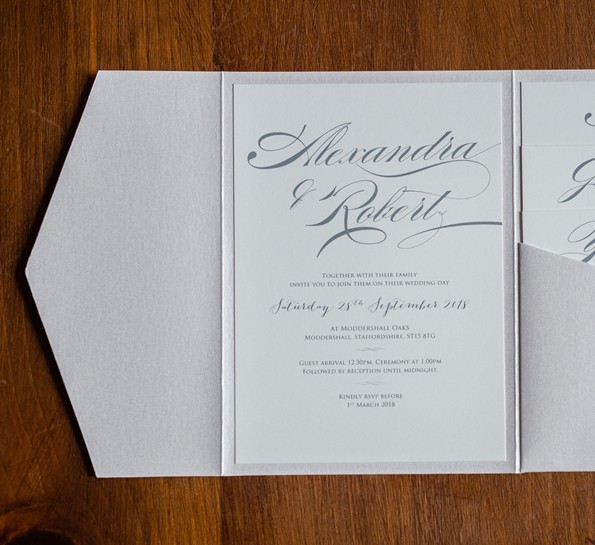 Alexandra
& Robert
Together with their family
invite you to join them on their wedding day
Saturday 28th September 2018
at Moddershall Oaks
Moddershall, Staffordshire, ST15 8TG
Guest arrival 12.30pm. Ceremony at 1.00pm
Followed by reception until midnight.
Kindly rsvp before
1st March 2018